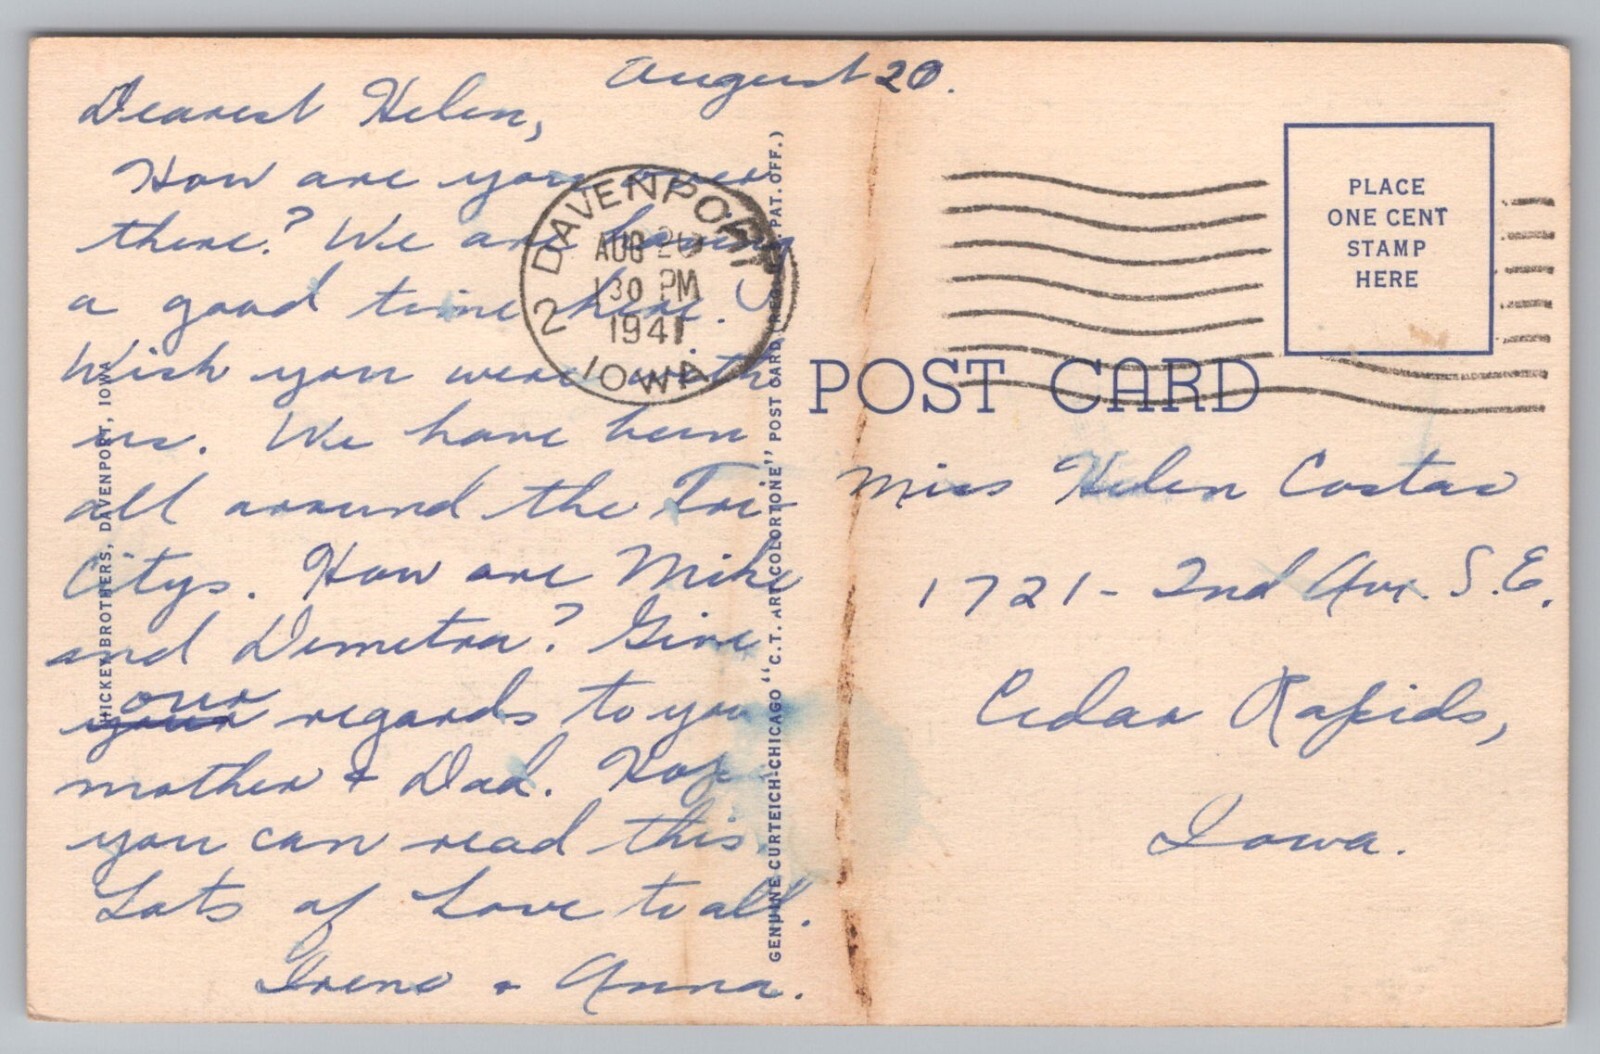 August 20.
Dearest Helen,
How are you over
there? We are having
a good time here.
Wish you were with
us. We have been
all around the Tri-
Citys. How are Mike
and Demetra? Give
our
your regards to you
mother & Dad. Hope
you can read this.
Lots of Love to all.
Irene & Anna.
HICKEY BROTHERS, DAVENPORT, IOWA
DAVENPORT
AUG 20
1 30 PM
1941
2 IOWA
GENUINE CURTEICH-CHICAGO "C.T. ART-COLORTONE" POST CARD (REG. U.S. PAT. OFF.)
PLACE
ONE CENT
STAMP
HERE
POST CARD
Miss Helen Costas
1721 - 2nd Ave. S.E.
Cedar Rapids,
Iowa.